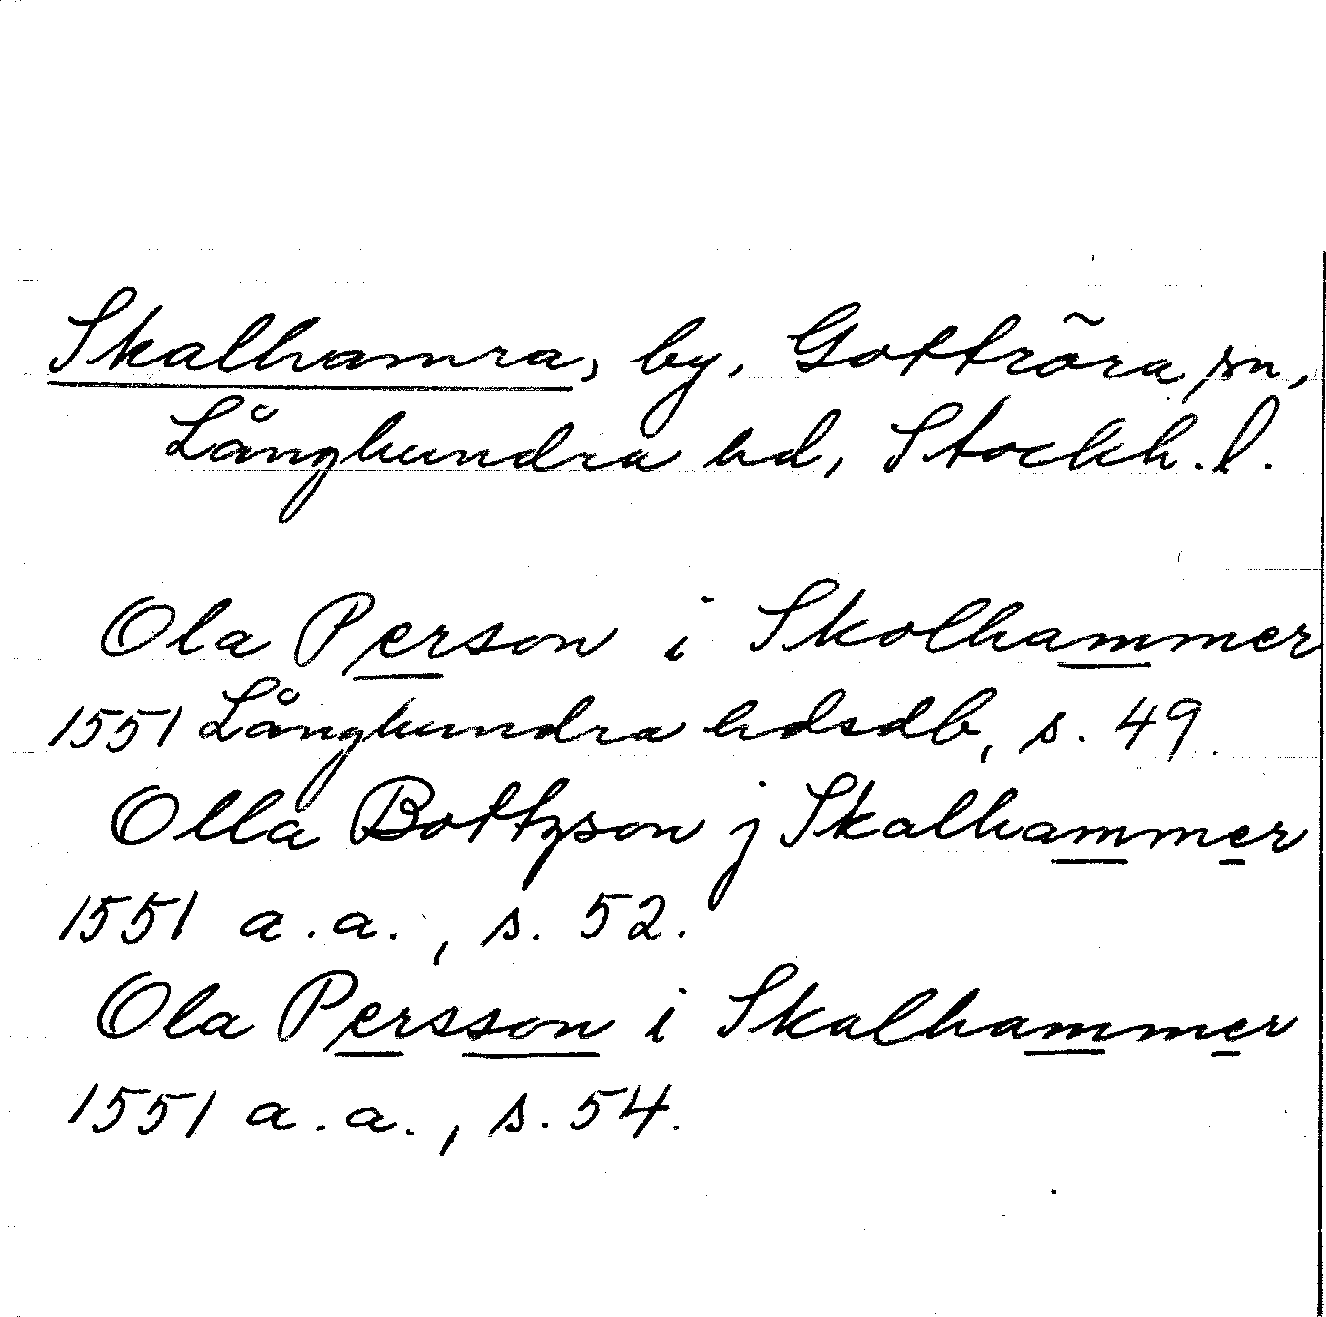 Skalhamra, by, Gottröra sn,
Långhundra hd, Stockh. l.
Ola Person i Skolhammer
1551 Långhundra hdsdb, s. 49.
Olla Bottzson j Skalhammer
1551 a.a., s. 52.
Ola Persson i Skalhammer
1551 a.a., s. 54.